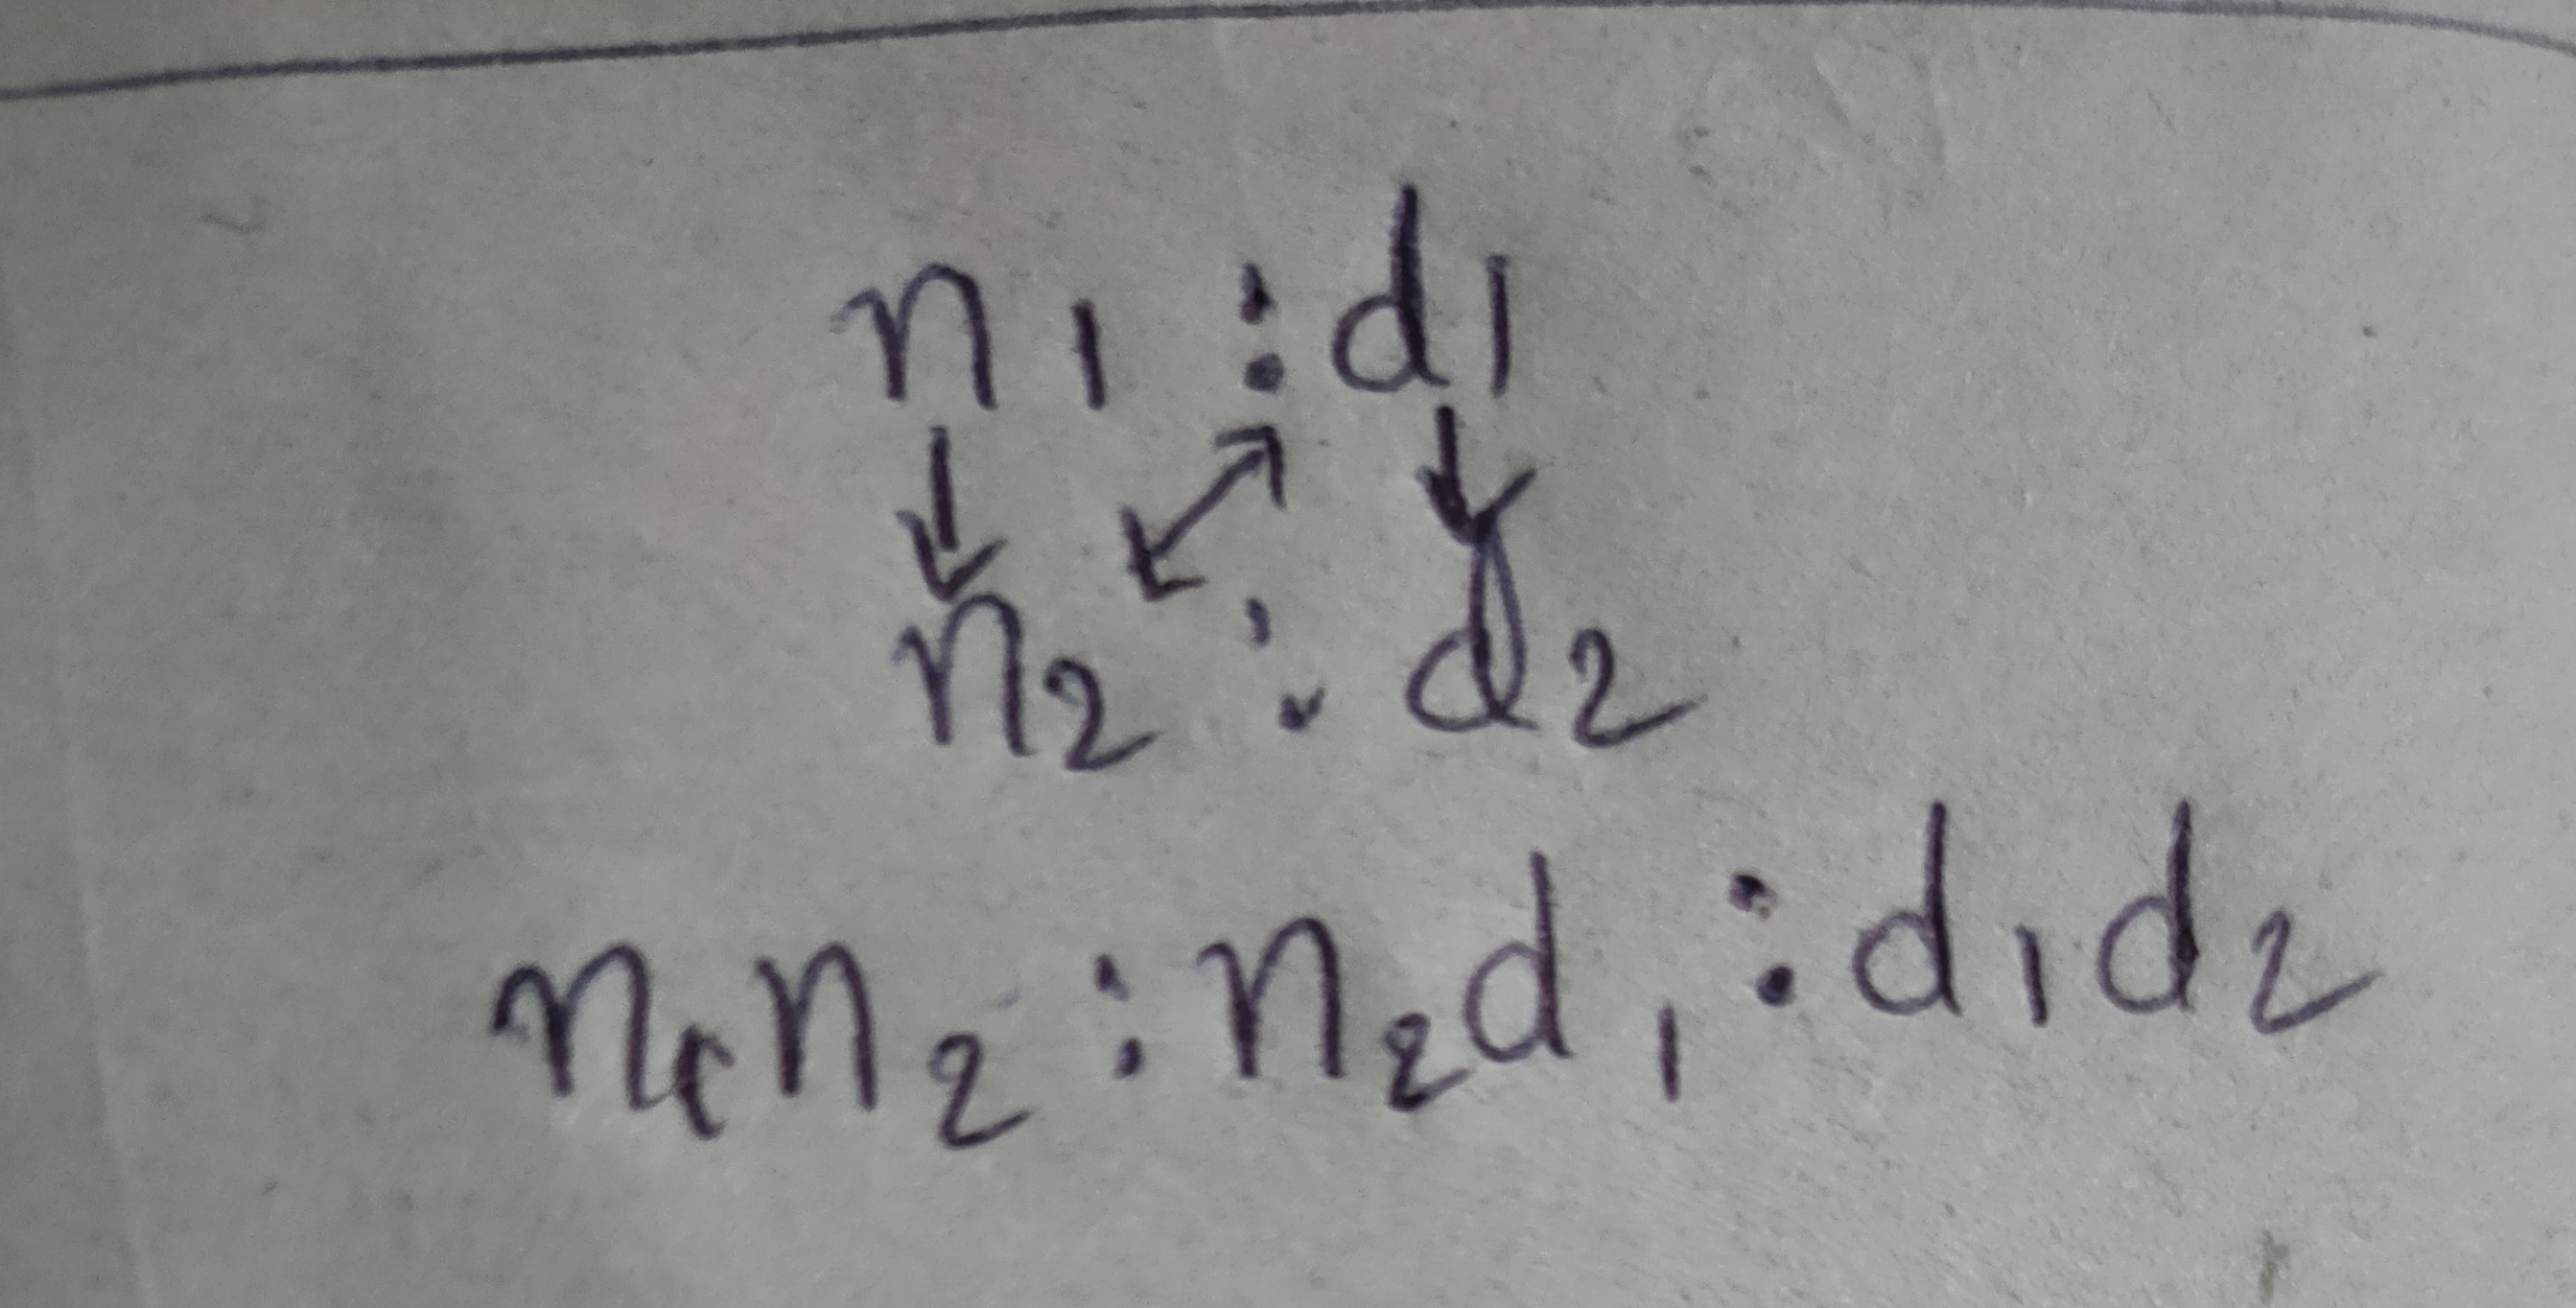 n1 : d1
n2 : d2
n1n2 : n2d1 : d1d2